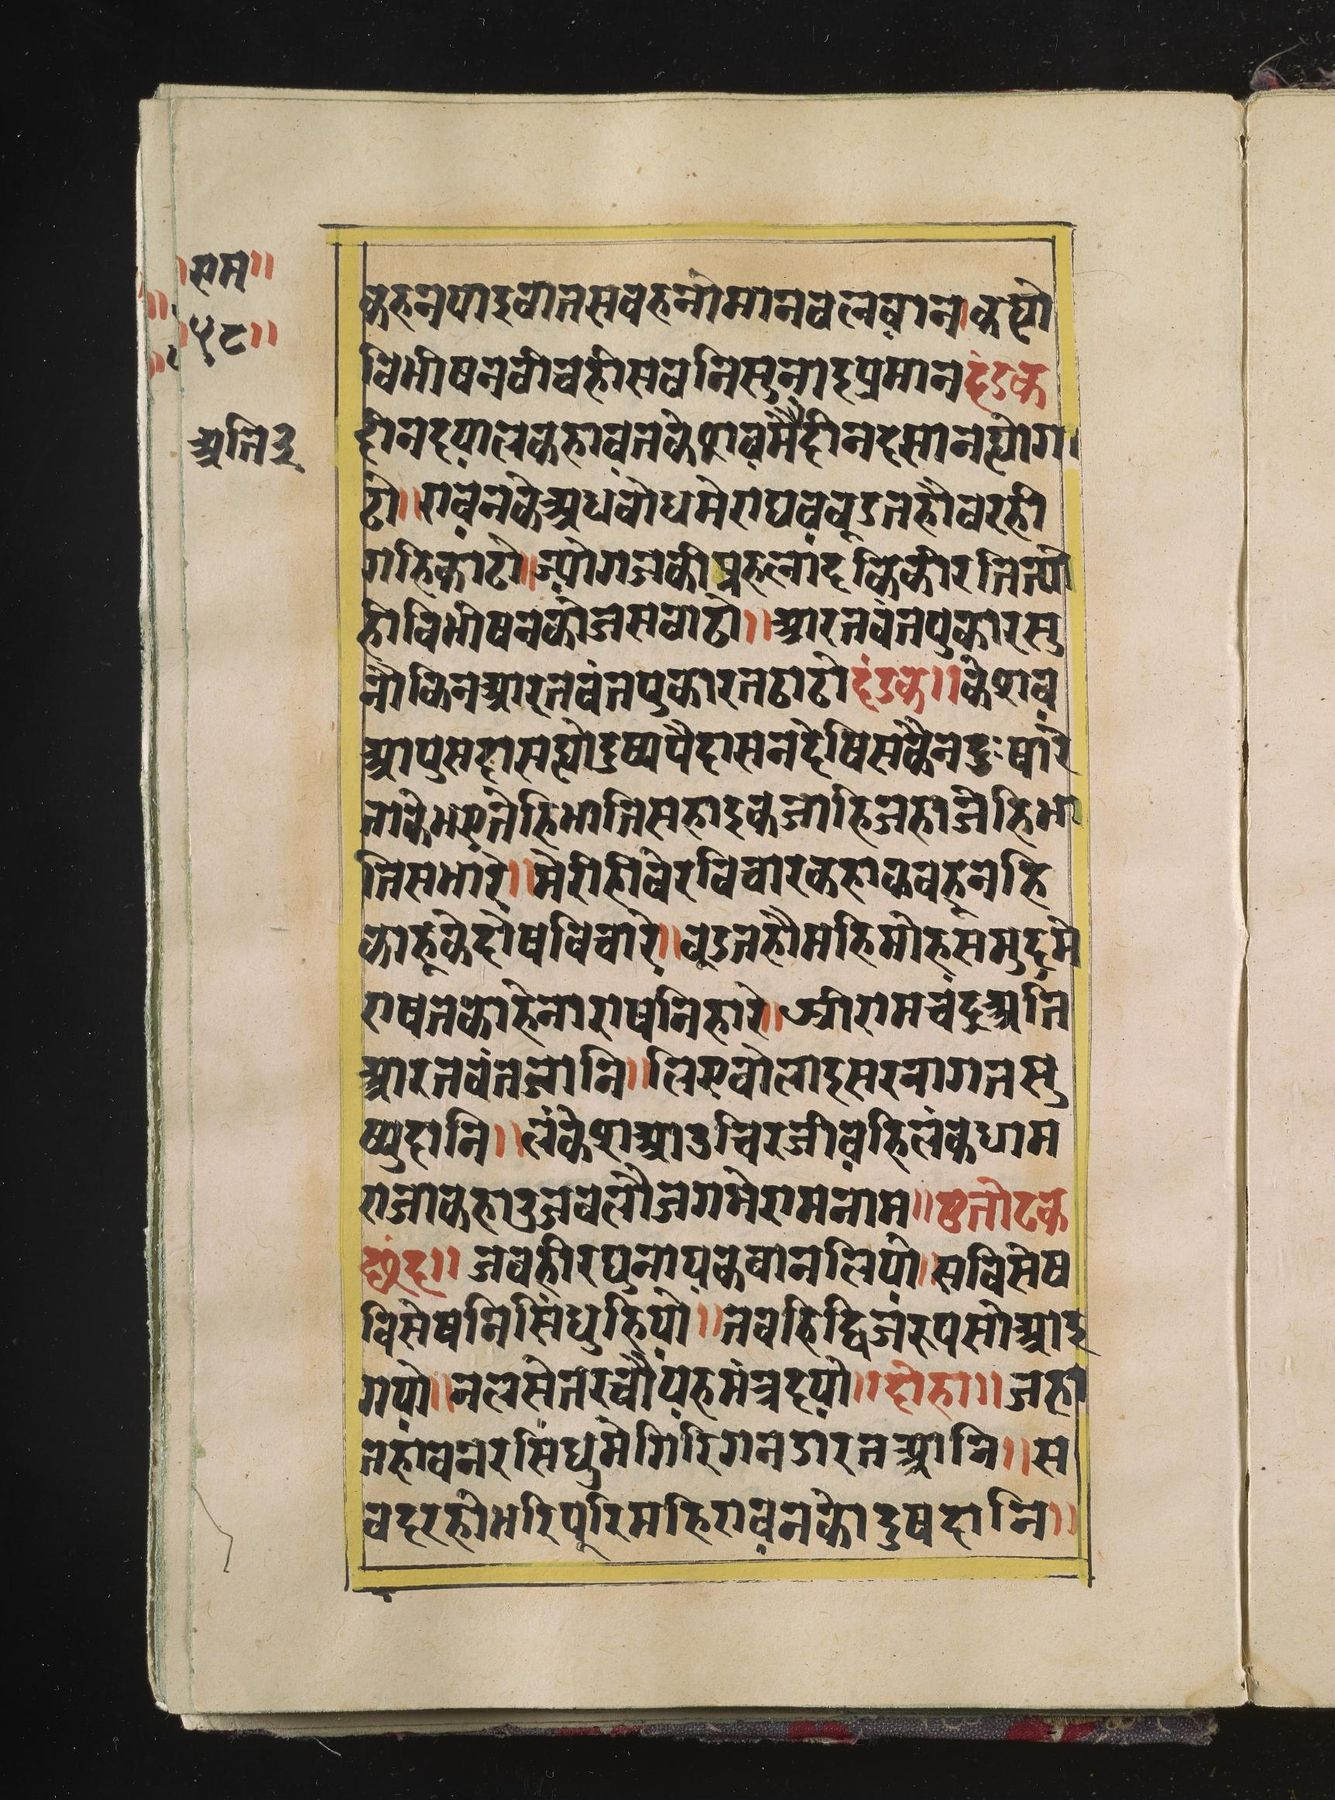 राम॥
५८॥
अति३
कहनपाइबातसबहनीमानबलबान।कह्यो
विभीषनबीचहीसबनिसुनाइप्रमानदंडक
दीनदयालकहावतकेशवमैंदीनदसानह्योगा
ढो॥रावनकेअघवोघमेराघवबूडतहौंबरही
गहिकाढो॥ज्योगजकीप्रहलादकिकीरतित्यो
हीविभीषनकोजसबाढो॥आरतबंतपुकारसु
नौकिनआरतबंतपुकारतठाढो दंडक॥केशव
आपुसदासह्योदुष्यपैदासनदेषिसकैनदुःषारे
जाकेभएजेहिभातिसहाइकजाहिजहाजेहिभा
तिसभारे॥मेरीहीबेरविचारकहाकबहूनहि
काहूकेदोषविचारे॥बूडतहौमहिमोहसमुद्रमे
राषतकाहेनाराषनिहारे॥श्रीरामचंद्रअति
आरतबंतजानि॥लिएबोलाइसरनागतसु
ष्यदानि॥लंकेशआउचिरजीवहिलंकधाम
राजाकहाउजबलौजगमेरामनाम॥छतोटक
छंद॥जबहीरघुनायकबानलियो।सविसेष
विसेषनिसिंधुहियो॥तबहिद्विजरुपसोआइ
गयो॥नलसेतरचौयहमंत्रदयो॥दोहा॥जहा
तहाबनरसिंधुमेगिरिगनडारतआनि॥स
बदरहीभरिपूरिमहिरावनकोदुषदानि॥